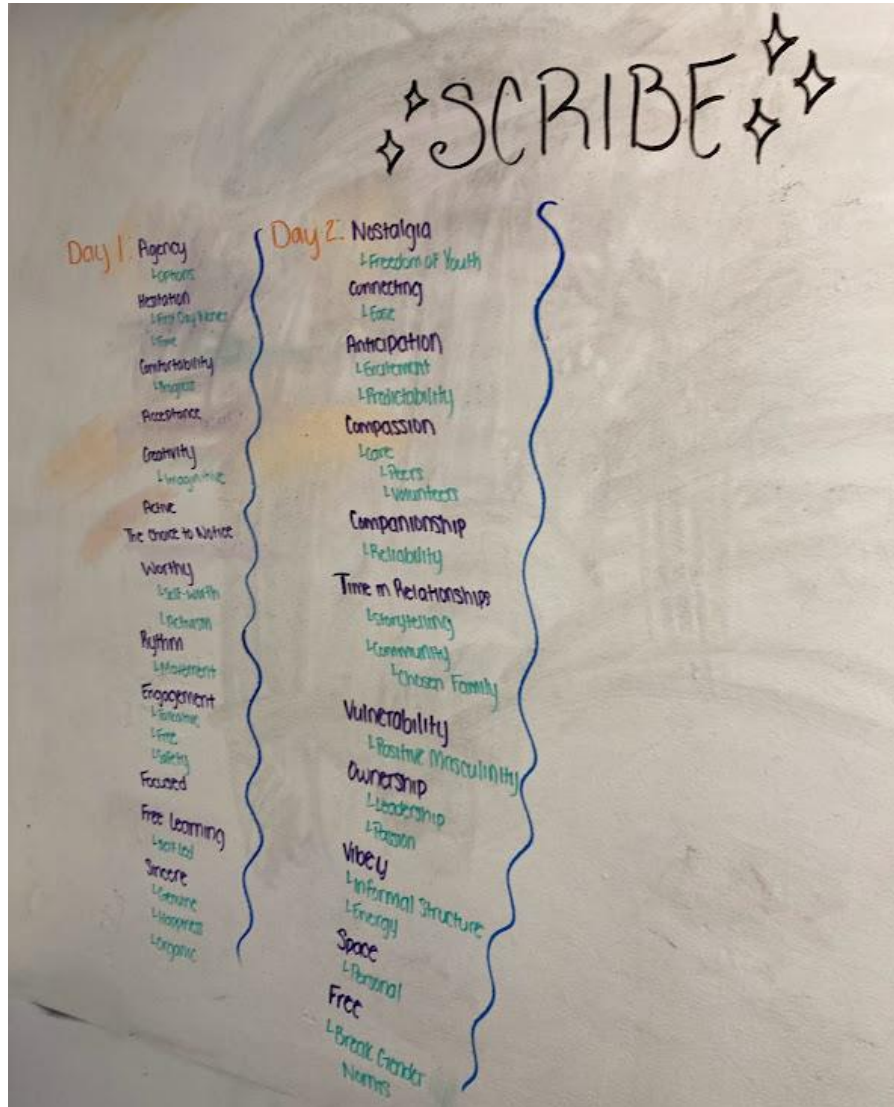 SCRIBE
Day 1: Agency
Options
Hesitation
First Day Nerves
Time
Comfortability
Progress
Acceptance
Creativity
Imaginitive
Active
The Choice to Notice
Worthy
Self-worth
Activism
Rythm
Movement
Engagement
Free
Safety
Focused
Free Learning
Self led
Sincere
Genuine
Happiness
Organic
Day 2: Nostalgia
Freedom of Youth
Connecting
Ease
Anticipation
Excitement
Predictability
Compassion
Care
Peers
Volunteers
Companionship
Reliability
Time in Relationships
Storytelling
Community
Chosen Family
Vulnerability
Positive Masculinity
Ownership
Leadership
Passion
Vibey
Informal Structure
Energy
Space
Personal
Free
Break Gender
Norms